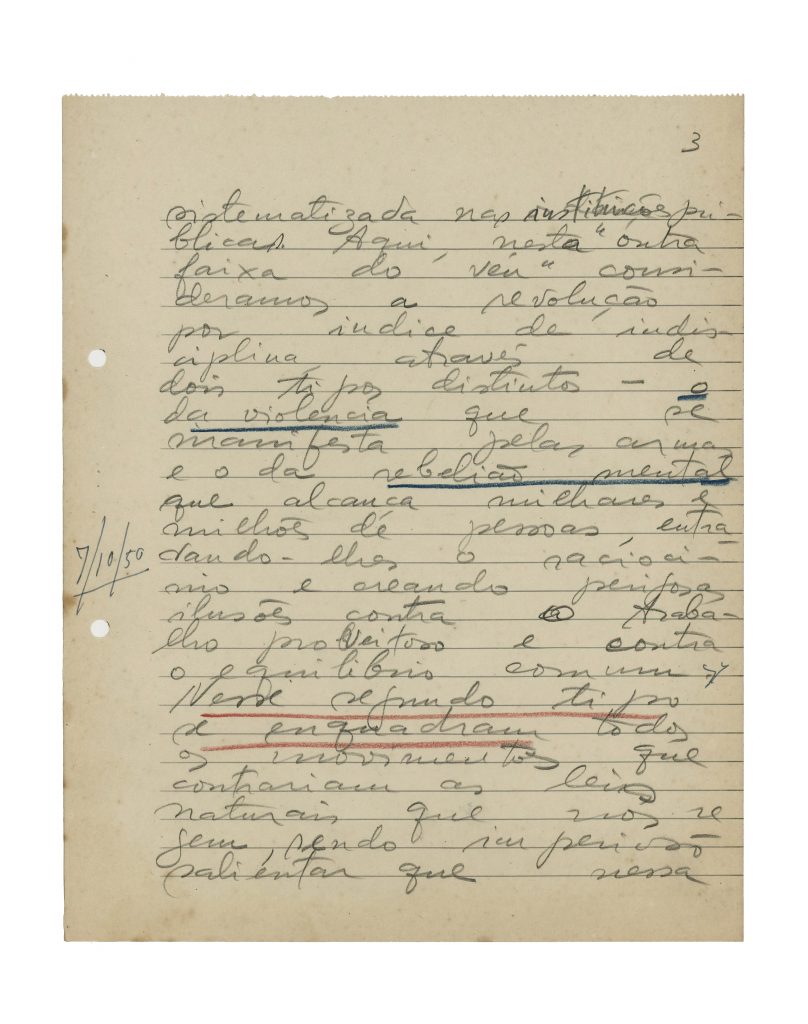 3
sistematizada nas instituições pú-
blicas. Aqui, nesta "outra
faixa do véu" consi-
deramos a revolução
por indice de indis-
ciplina, através de
dois tipos distintos - o
da violencia que se
manifesta pelas armas
e o da rebelião mental
que alcança milhares e
milhões de pessoas, entra
7/10/50
vando-lhes o racioci-
nio e creando perigosas
ilusões contra o traba-
lho proveitoso e contra
o equilibrio comum.
Nesse segundo tipo
se enquadram todos
os movimentos que
contrariam as leis
naturais que nos re
gem, sendo imperioso
salientar que nessa